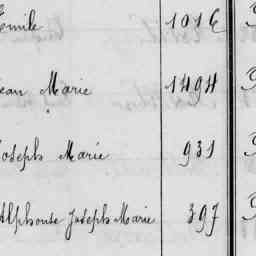 Emile 1016
Jean Marie 1494
Joseph Marie 931
Alphonse Joseph Marie 397